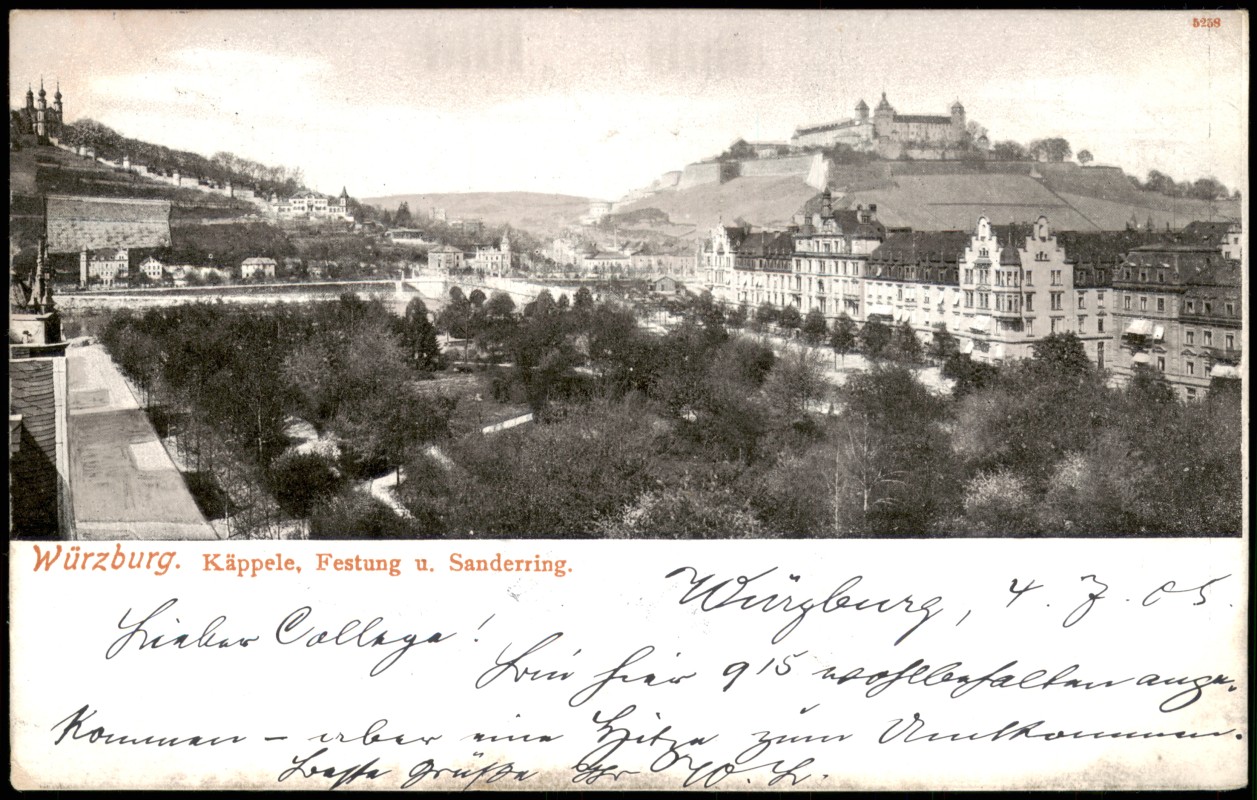 5258
Würzburg. Käppele, Festung u. Sanderring.
Würzburg, 4. 7. 05.
Lieber College!
Bin hier 9 15 wohlbehalten ange-
kommen – aber eine Hitze zum Umkommen.
Beste Grüße Ihr